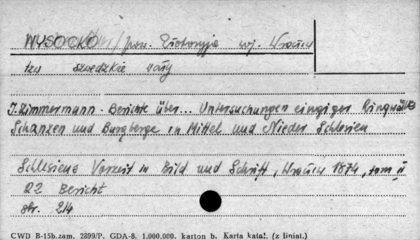 WYSOCKO pow. Złotoryja woj. Wrocław
tzw szwedzkie wały
J. Zimmermann - Berichte über... Untersuchungen einiger Ringwälle
Schanzen und Burgberge in Mittel und Nieder Schlesien
Schlesiens Vorzeit in Bild und Schrift, Wrocław 1874, tom II
22 Bericht
str. 24
CWD B-15b. zam. 2899/P. GDA-8. 1.000.000. karton b. Karta katal. (z liniat.)